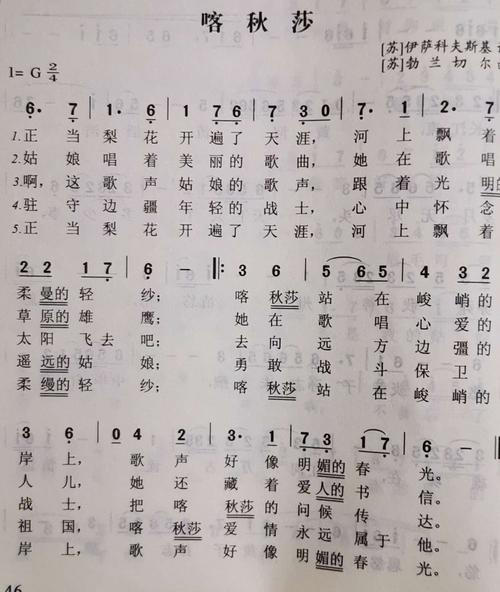 喀秋莎
[苏]伊萨科夫斯基
1=G 2/4
[苏]勃兰切尔
6· 7 | 1· 6 | 7 7 1 7 6 | 7 3 0 | 7· 1 | 2· 7
1.正当梨花开遍了天涯,河上飘着
2.姑娘唱着美丽的歌曲,她在歌唱
3.啊,这歌声姑娘的歌声,跟着光明的
4.驻守边疆年轻的战士,心中怀念
5.正当梨花开遍了天涯,河上飘着
2 2 1 7 | 6 - |: 3 6 | 5 6 5 | 4 4 3 2
柔曼的轻纱;喀秋莎站在峻峭的
草原的雄鹰;她在歌唱心爱的
太阳飞去吧;去向远方边疆的
遥远的姑娘;勇敢战斗保卫
柔缦的轻纱;喀秋莎站在峻峭的
3 6 | 0 4 2 | 3· 1 | 7 3 1 7 | 6 -
岸上,歌声好像明媚的春光。
人儿,她还藏着爱人的书信。
战士,把喀秋莎的问候传达。
祖国,喀秋莎爱情永远属于他。
岸上,歌声好像明媚的春光。
46